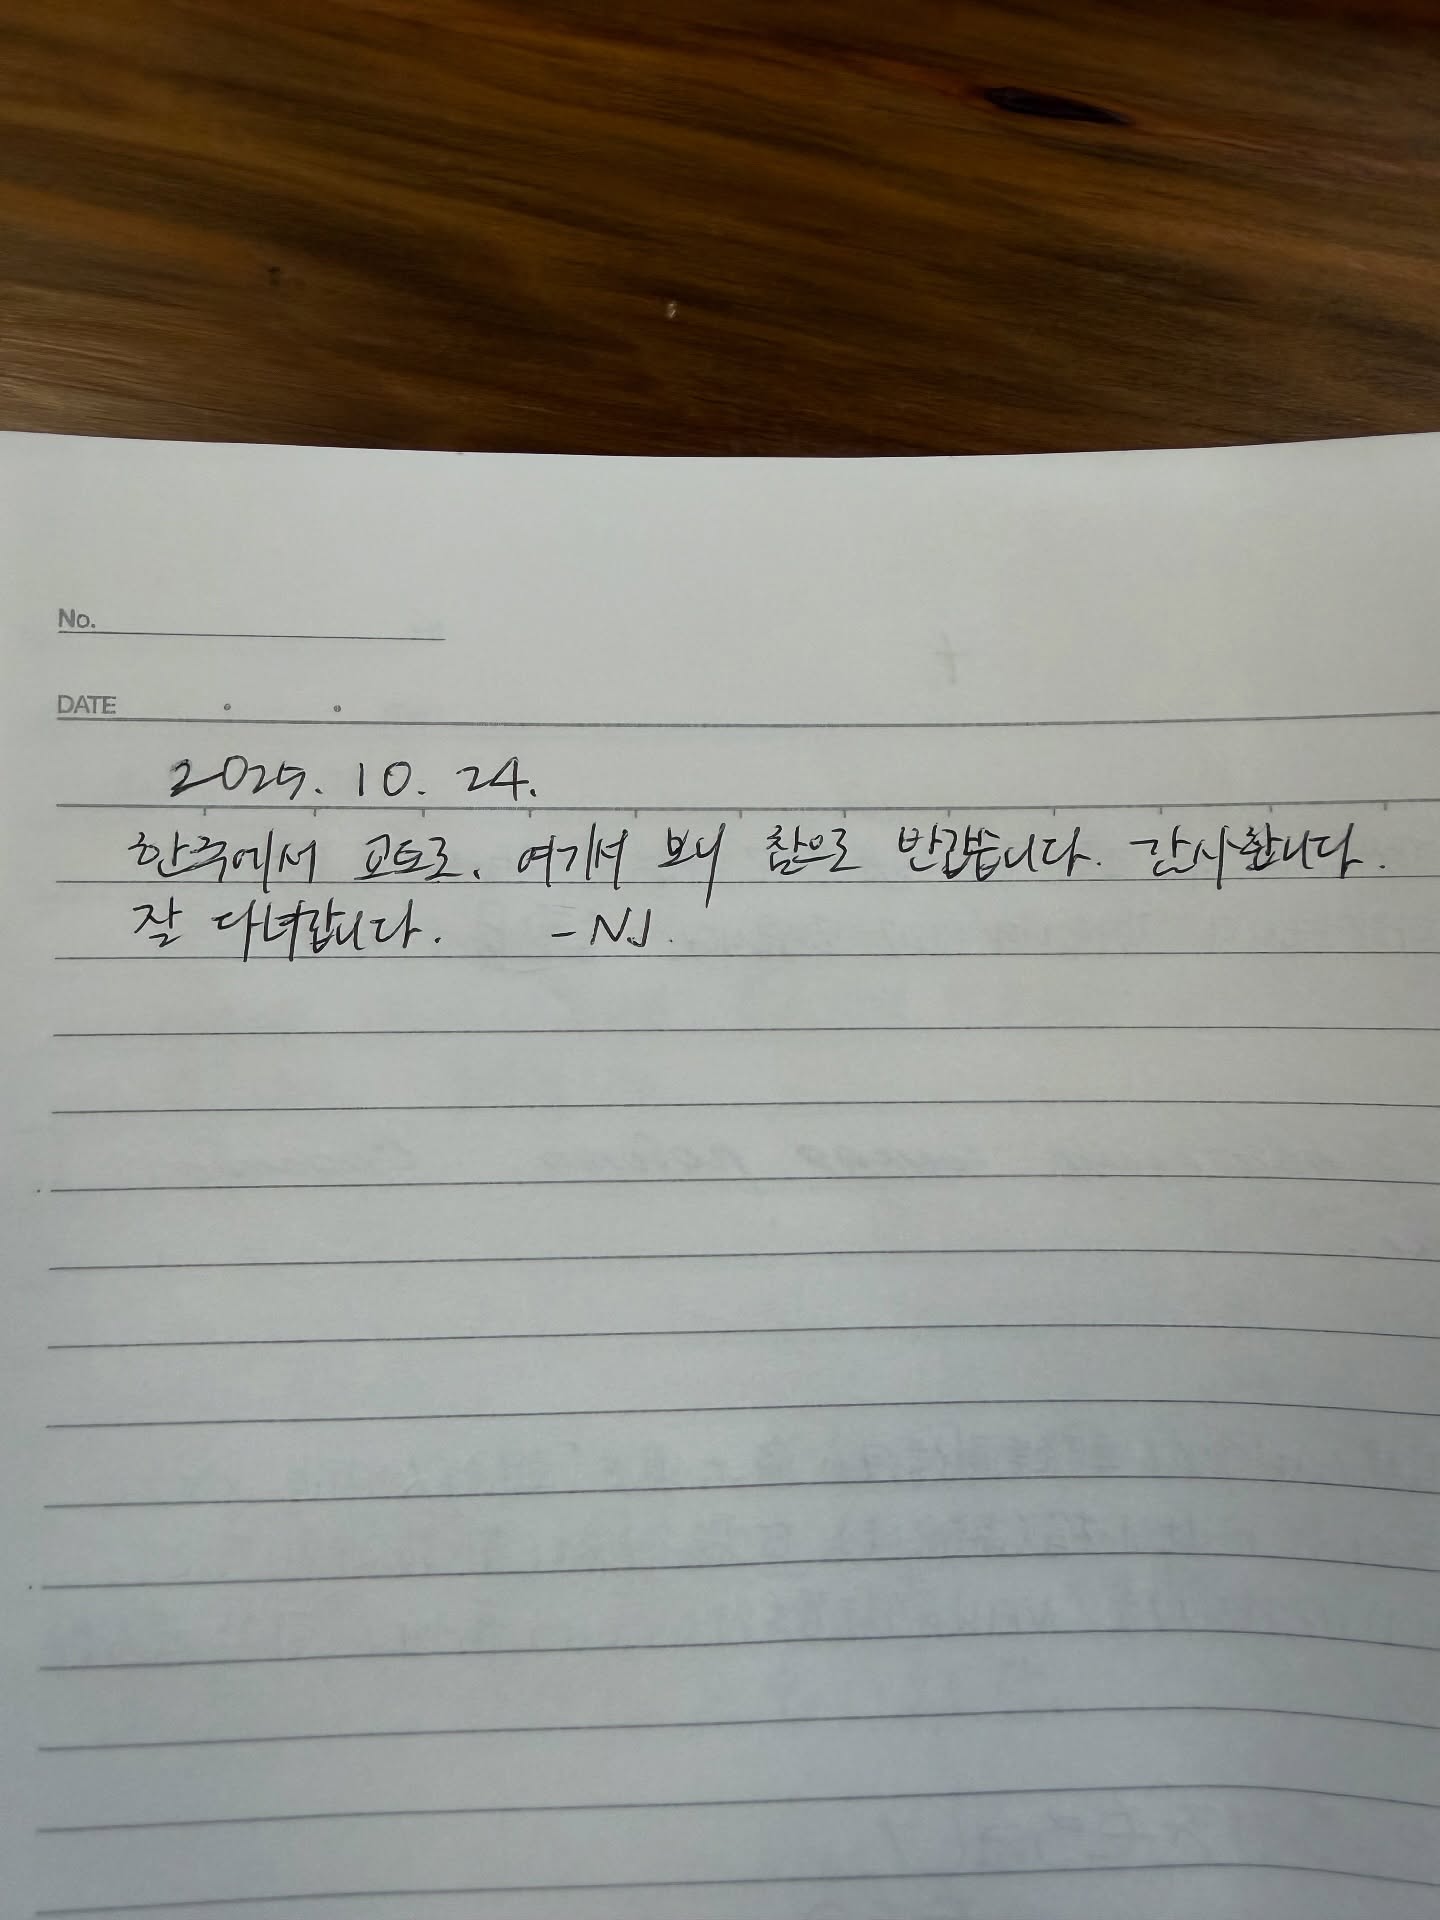 No.
DATE . .
2025. 10. 24.
한국에서 교토로, 여기서 보니 참으로 반갑습니다. 감사합니다.
잘 다녀갑니다. -NJ.